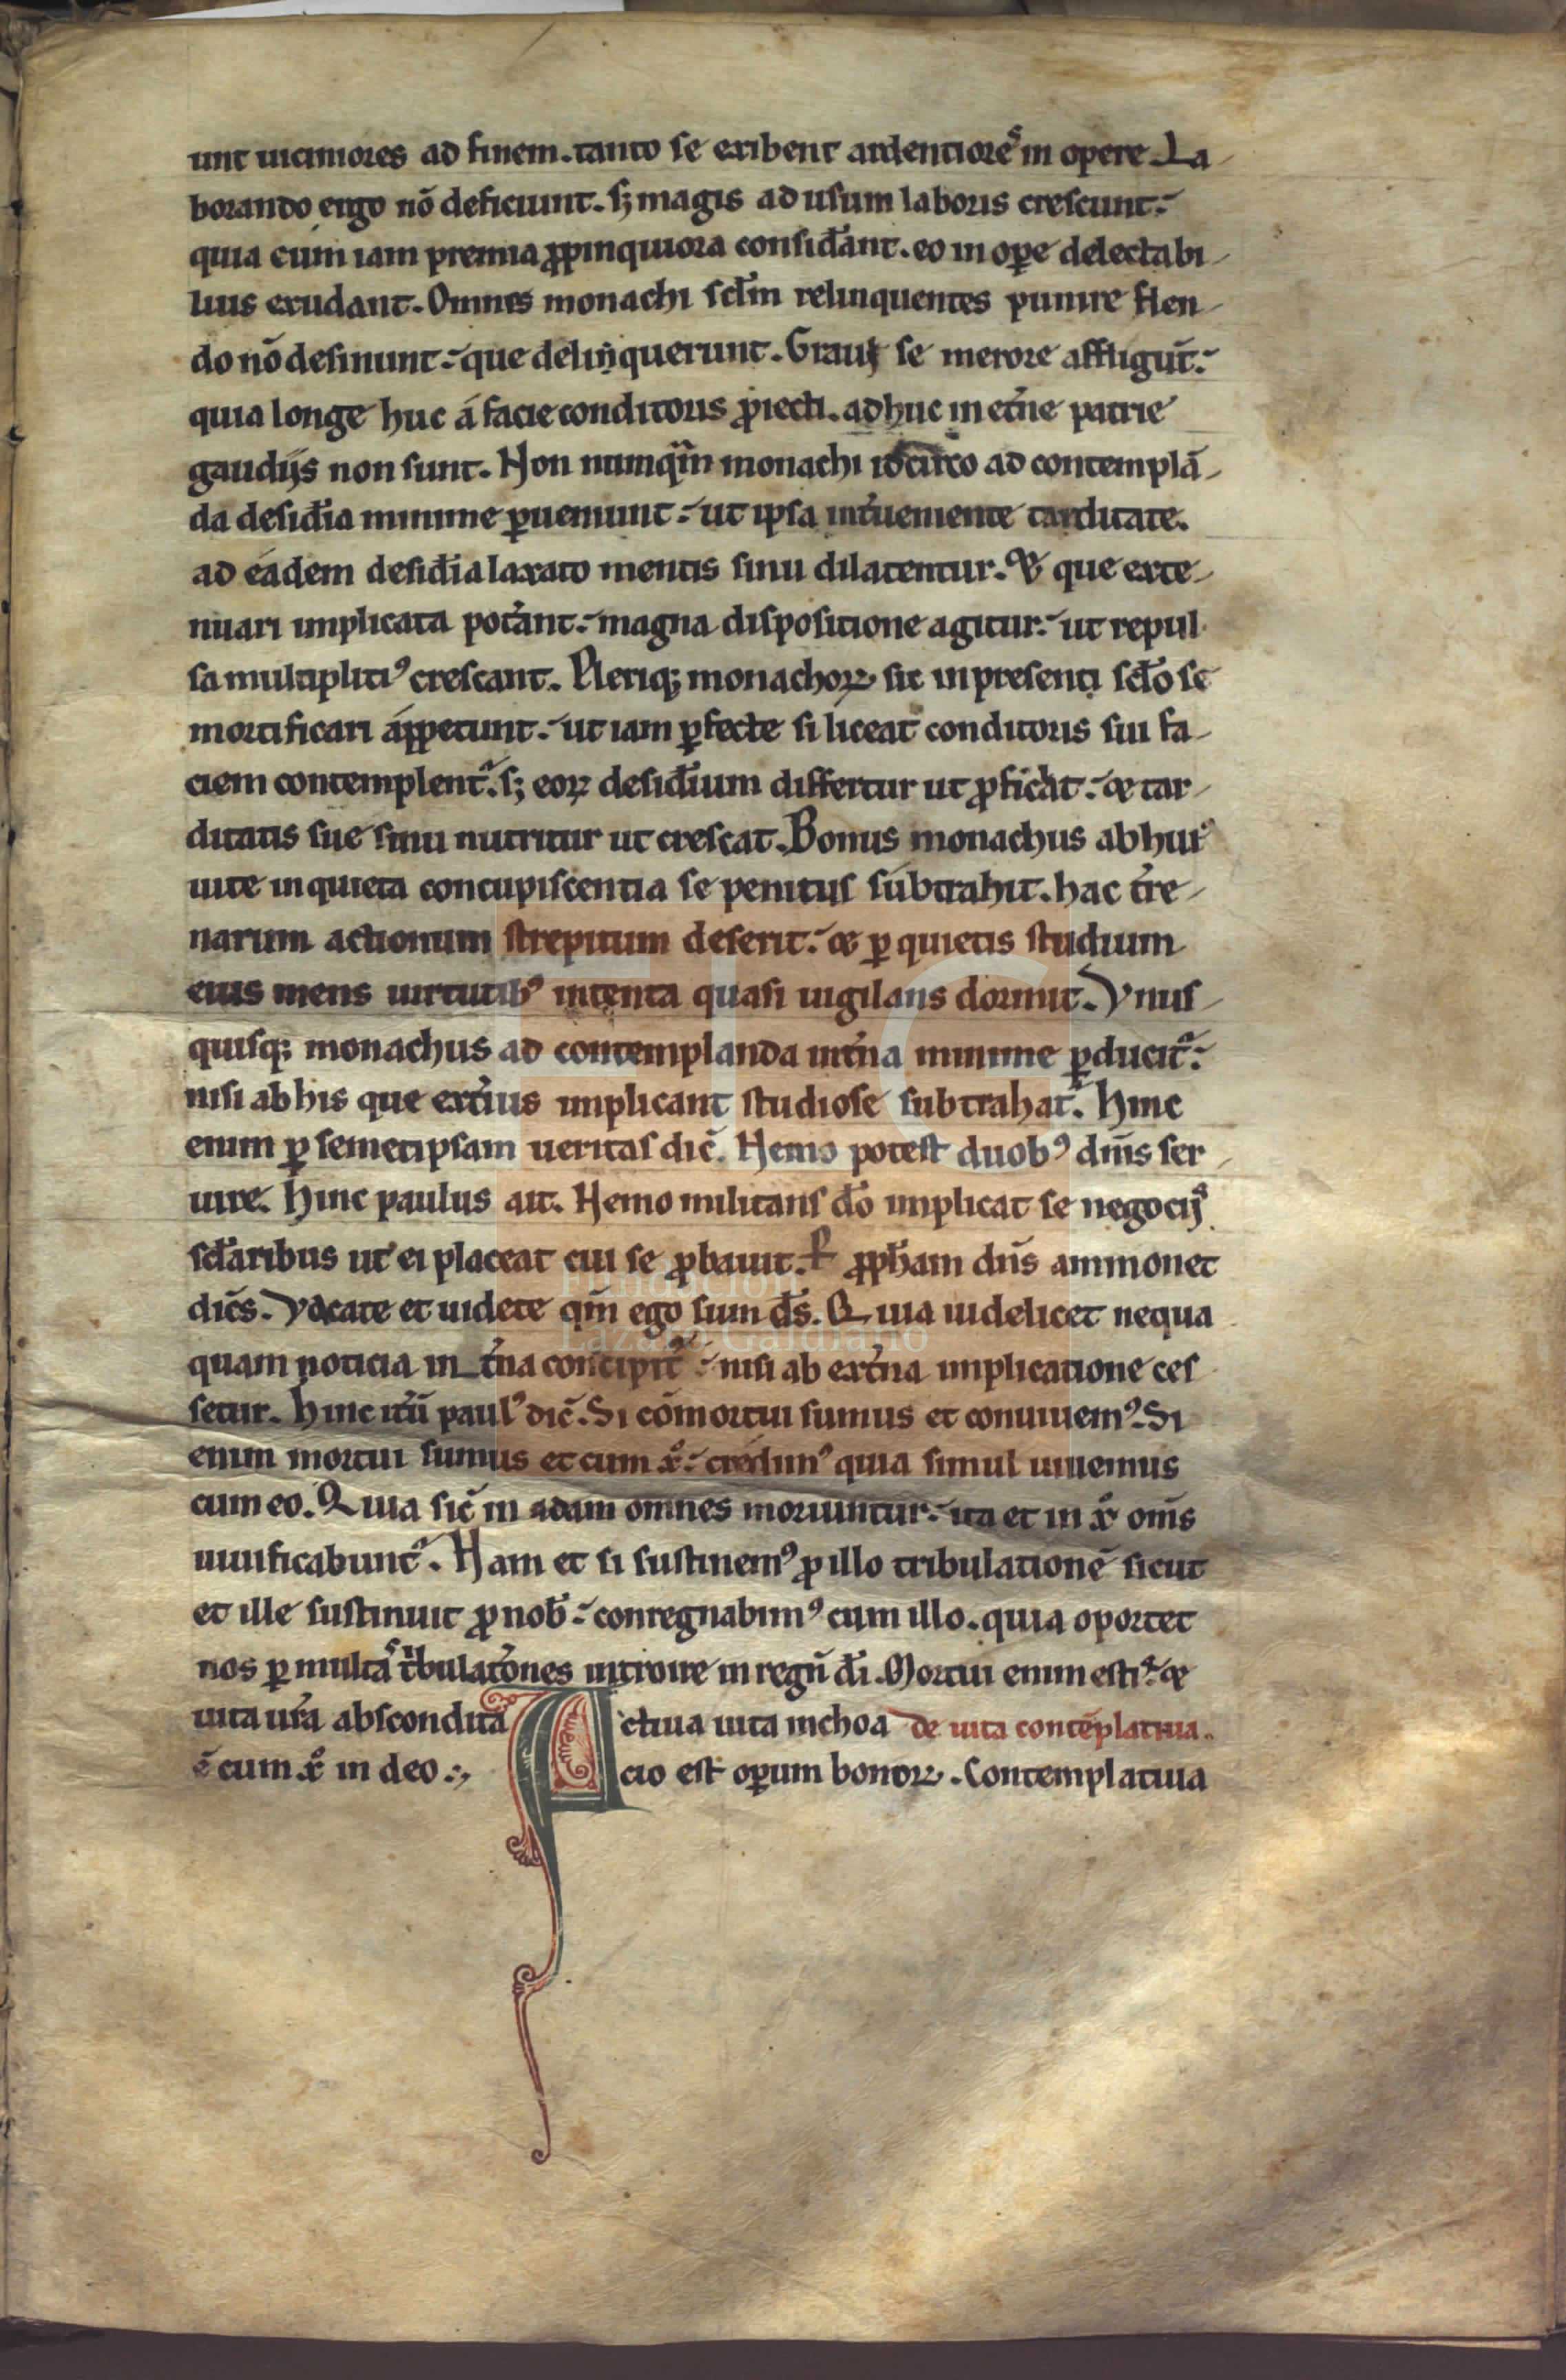 unt uiciniores ad finem. tanto se exibent ardentiores in opere. La-
borando ergo nō deficiunt. sꝫ magis ad usum laboris crescunt.
quia cum iam premia ꝓpinquiora considant̄. eo in oꝑe delectabi-
lius exudant. Omnes monachi scl̄m relinquentes punire flen-
do nō desinunt. que delinquerunt. Grauit se merore affligūt.
quia longe huc á facie conditoris ꝓiecti. adhuc in et̄ne patrie
gaudijs non sunt. Non numq̄m monachi idcirco ad contemplā-
da desid̄ia minime ꝑueniunt. ut ipsa int̄ueniente tarditate.
ad eádem desid̄ia laxato mentis sinu dilatentur. & que exte-
nuari implicata pot̄ant. magna dispositione agitur. ut repul-
sa multiplitiꝰ crescant. Pleriqꝫ monachoꝝ sic in presenti scl̄o se
mortificari áppetunt. ut iam ꝑfecte si liceat conditoris sui fa-
ciem contemplent̉. sꝫ eoꝝ desid̄ium differtur ut ꝓficiat. & tar-
ditatis sue sinu nutritur ut crescat. Bonus monachus ab huiꝰ
uite inquieta concupiscentia se penitus subtrahit. hac t̄re-
narum actionum strepitum deserit. & ꝑ quietis studium
eius mens uirtutibꝰ intenta quasi uigilans dormit. Vnus-
quisqꝫ monachus ad contemplanda int̄na minime ꝑducit̉.
nisi ab his que ext̄ius implicant studiose subtrahat̉. Hinc
enim ꝑ semetipsam ueritas dic̄. Nemo potest duobꝰ dn̄is ser-
uire. Hinc paulus ait. Nemo militans dō implicat se negocijs
scl̄aribus ut ei placeat cui se ꝓbauit. ꝓph̄am dn̄s ammonet
dic̄s. Vacate et uidete qm̄ ego sum ds̄. Quia uidelicet nequa
quam noticia int̄na concipit̉. nisi ab ext̄na implicatione ces
setur. Hinc it̄ū paulꝰ dic̄. Si cōmortui sumus et conuiuemꝰ. Si
enim mortui sumus et cum xº. credimꝰ quia simul uiuemus
cum eo. Quia sic̄ in adam omnes moriuntur. ita et in xº om̄s
uiuificabunt̉. Nam et si sustinemꝰ ꝓ illo tribulationē sicut
et ille sustinuit ꝓ nob̄. conregnabimꝰ cum illo. quia oportet
nos ꝑ multas tⁱbulatōnes introire in regn̄ dī. Mortui enim estis. &
uita ur̄a abscondita
ē cum xº in deo.
de uita contēplatiua.
Actiua uita inchoa
cio est oꝑum bonoꝝ. Contemplatiua
Fundación
Lázaro Galdiano